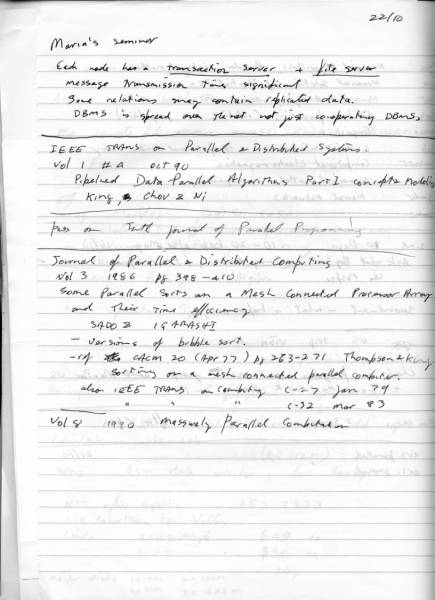 22/10
Maria's seminar
Each node has a transaction server + file server
message transmission time significant
Some relations may contain replicated data.
DBMS is spread over the net not just co-operating DBMS.
IEEE TRANS on Parallel & Distributed Systems.
Vol 1 #4 Oct 90
Pipelined Data Parallel Algorithms Part I concept & Modeling
King, Chou & Ni
pass on Intl Journal of Parallel Programming
Journal of Parallel & Distributed Computing
Vol 3 1986 pg 398-410
Some Parallel Sorts on a Mesh Connected Processor Array
and Their Time efficiency
SADO & IGARASHI
- versions of bubble sort.
- ref CACM 20 (Apr 77) pg 263-271 Thompson & Kung
Sorting on a mesh connected parallel computer.
also IEEE TRANS on Computing C-27 Jan 79
" " " C-32 Mar 83
Vol 8 1990 Massively Parallel Computation